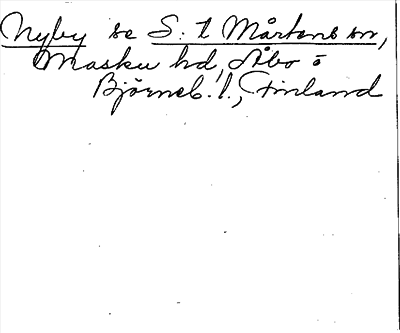 Nyby se S:t Mårtens sn,
Masku hd, Åbo o
Björneb. l., Finland